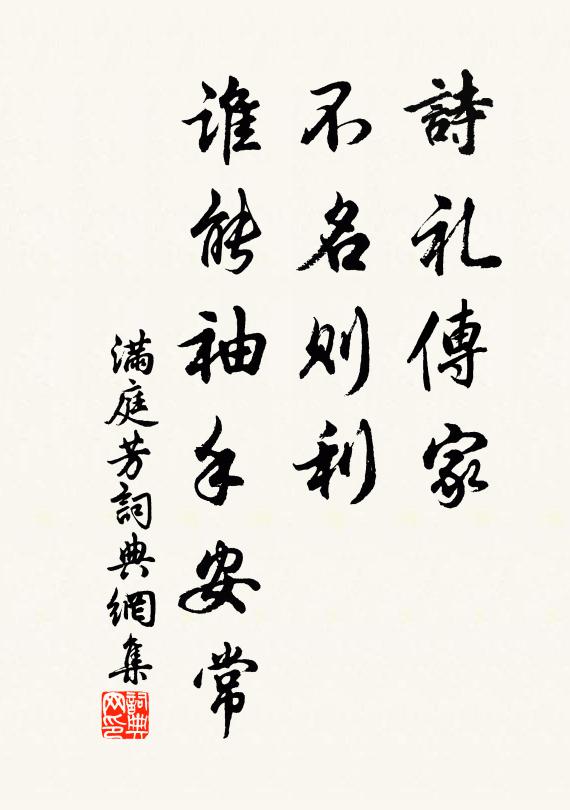 詩礼傳家
不名則利
誰能袖手安常
滿庭芳詞典網集
詞典網印